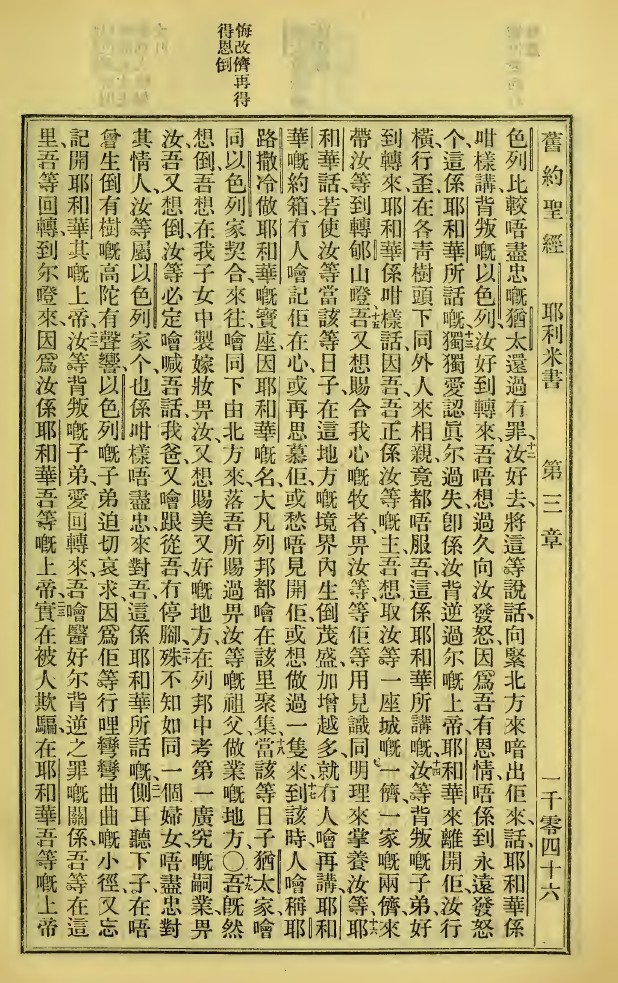 舊約聖經　耶利米書　第三章　一千零四十六
悔改儕再得
得恩倒
色列比較唔盡忠嘅猶太還過有罪、十二汝好去、將這等說話、向緊北方來喑出佢來話、耶和華係
咁樣講背叛嘅以色列、汝好到轉來、吾唔想過久向汝發怒、因爲吾有恩情、唔係到永遠發怒
個、這係耶和華所話嘅、十三獨獨愛認眞尔過失、卽係汝背逆過尔嘅上帝、耶和華來離開佢、汝行
橫行歪在各青樹頭下、同外人來相親、竟都唔服吾、這係耶和華所講嘅、十四汝等背叛嘅子弟、好
到轉來、耶和華係咁樣話、因吾吾正係汝等嘅主、吾想取汝等、一座城嘅一儕、一家嘅兩儕、來
帶汝等到轉郇山嶝、十五吾又想賜合我心嘅牧者畀汝等、等佢等用見識同明理來掌養汝等、十六耶
和華話、若使汝等當該等日子、在這地方嘅境界內生倒茂盛加增越多、就冇人噲再講、耶和
華嘅約箱、冇人噲記佢在心、或再思慕佢、或愁唔見開佢、或想做過一隻來、十七到該時人噲稱耶
路撒冷做耶和華嘅寶座、因耶和華嘅名、大凡列邦都噲在該里聚集、十八當該等日子、猶太家噲
同以色列家契合來往、噲同下由北方來、落吾所賜過畀汝等嘅祖父做業嘅地方、〇十九吾旣然
想倒、吾想在我子女中製嫁妝畀汝、又想賜美又好嘅地方、在列邦中考第一廣究嘅嗣業畀
汝、吾又想倒汝等必定噲喊吾話、我爸、又噲跟從吾冇停腳、二十殊不知如同一個婦女唔盡忠對
其情人、汝等屬以色列家个、也係咁樣唔盡忠來對吾、這係耶和華所話嘅、二一側耳聽下子、在唔
曾生倒有樹嘅高陀有聲響、以色列嘅子弟迫切哀求、因爲佢等行哩彎彎曲曲嘅小徑、又忘
記開耶和華其嘅上帝、二二汝等背叛嘅子弟、愛回轉來、吾噲醫好尔背逆之罪嘅關係、吾等在這
里、吾等回轉到尔嶝來、因爲汝係耶和華吾等嘅上帝、二三實在被人欺騙、在耶和華吾等嘅上帝